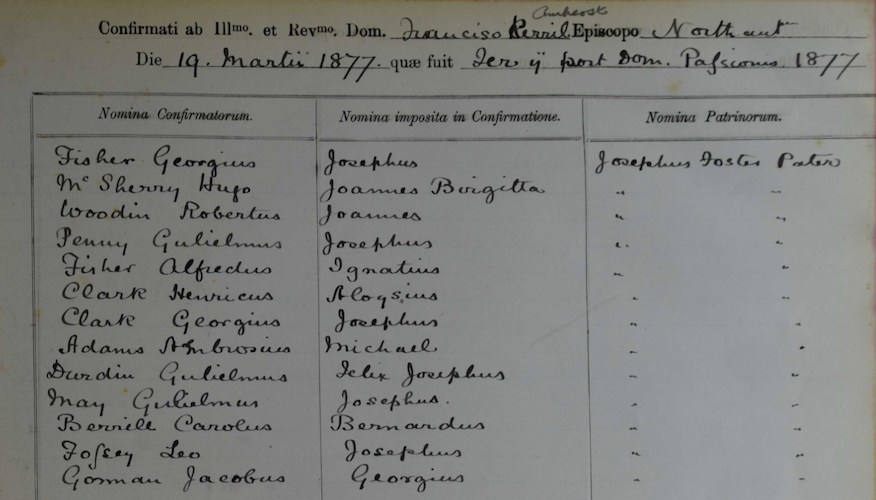 Amherst
Confirmati ab Illmo. et Revmo. Dom. Franciso Kerril Episcopo Northant
Die 19. Martii 1877. quæ fuit Fer ij post Dom. Passionis 1877
Nomina Confirmatorum. Nomina imposita in Confirmatione. Nomina Patrinorum.
Fisher Georgius Josephus Josephus Foster Pater
Mc Sherry Hugo Joannes Birgitta " "
Woodin Robertus Joannes " "
Penny Gulielmus Josephus " "
Fisher Alfredus Ignatius " "
Clark Henricus Aloysius " "
Clark Georgius Josephus " "
Adams Ambrosius Michael " "
Durdin Gulielmus Felix Josephus " "
May Gulielmus Josephus. " "
Berrill Carolus Bernardus " "
Fossey Leo Josephus " "
Gorman Jacobus Georgius " "